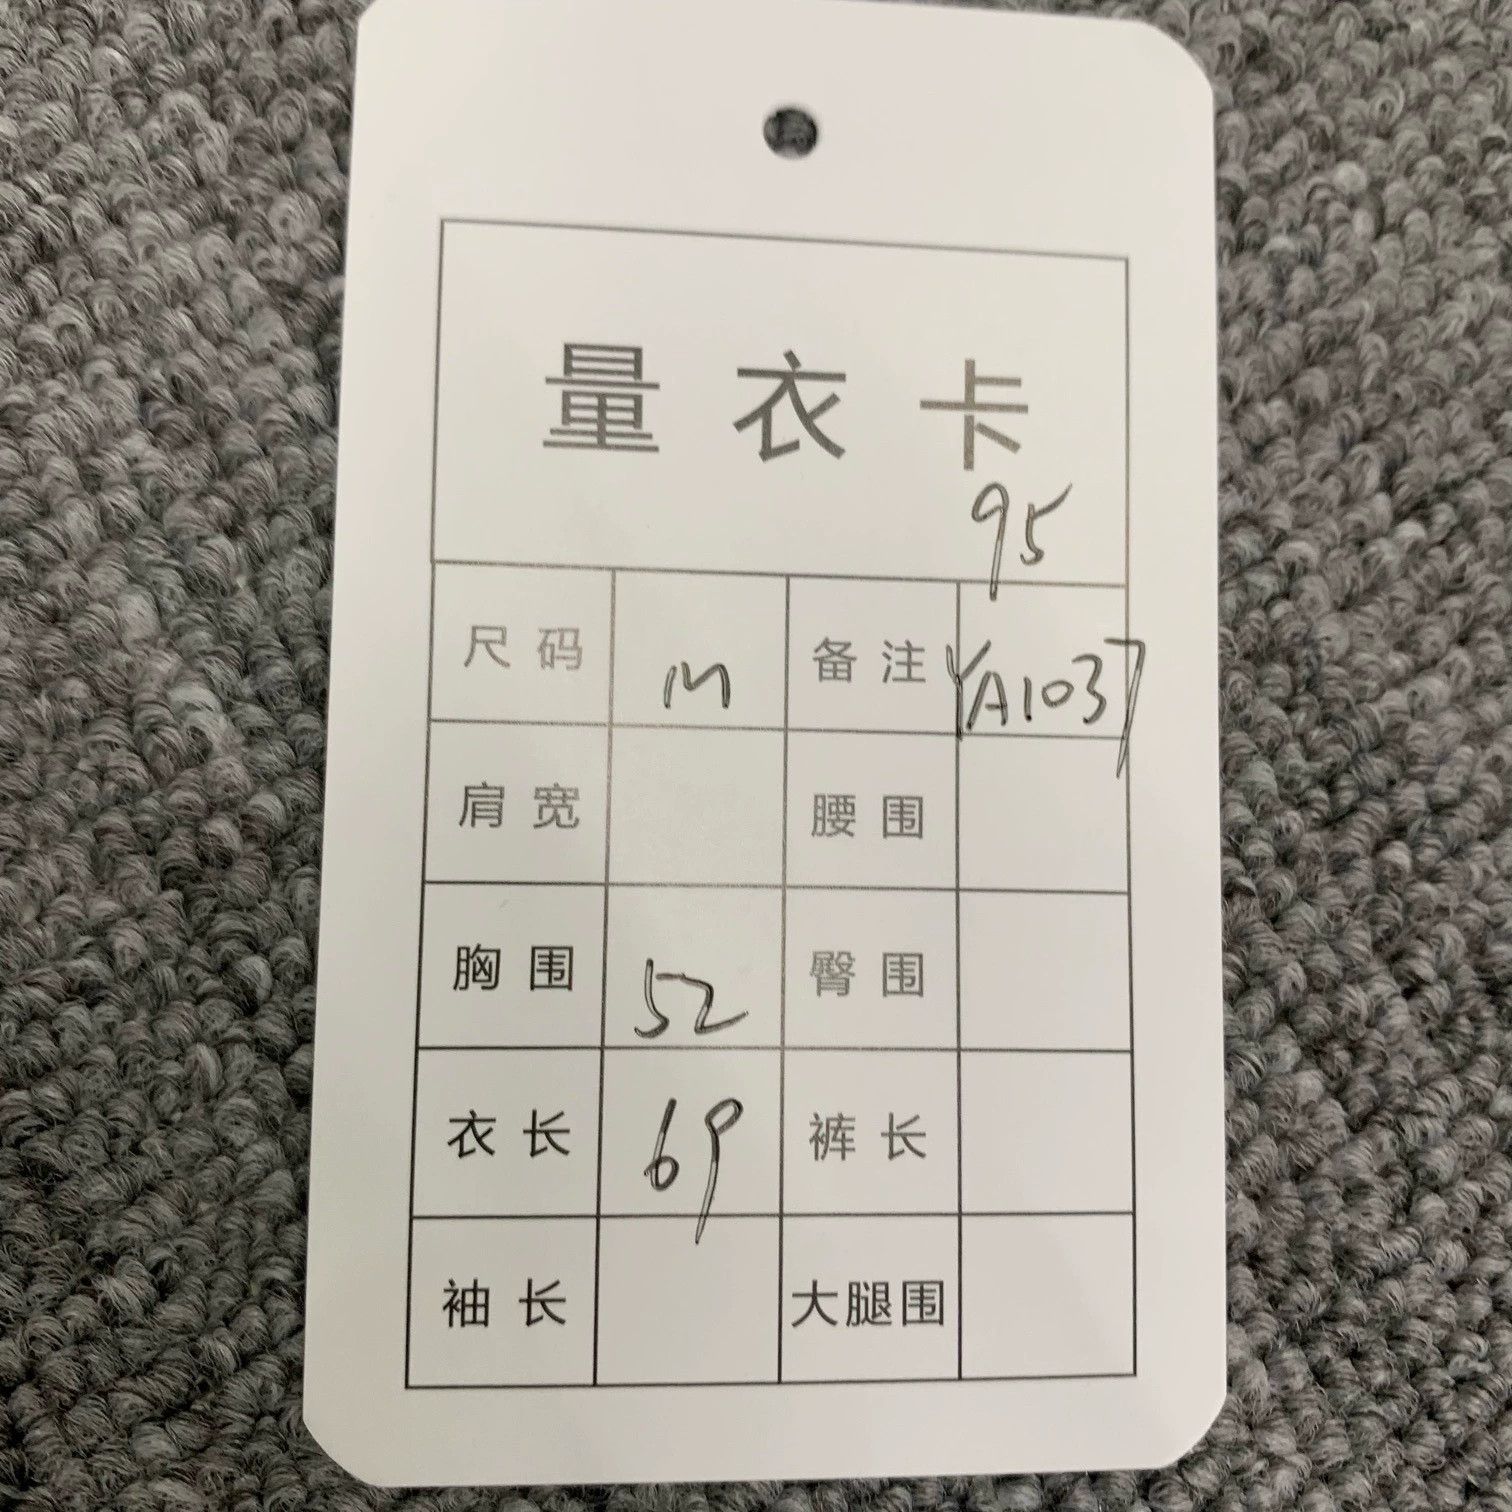 量衣卡
95
尺码 M 备注 YA1037
肩宽 腰围
胸围 52 臀围
衣长 69 裤长
袖长 大腿围